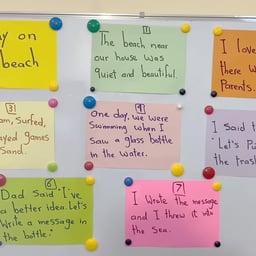 y on
beach
1
The beach near
our house was
quiet and beautiful.
I love
there w
Parents.
3
am, Surfed,
ayed games
Sand.
4
One day, we were
Swimming when I
Saw a glass bottle
in the water.
I Said t
"Let's Pu
the trash
6
Dad Said "I've
a better idea. Let's
Write a message in
the bottle."
7
I Wrote the message
and I threw it into
the Sea.